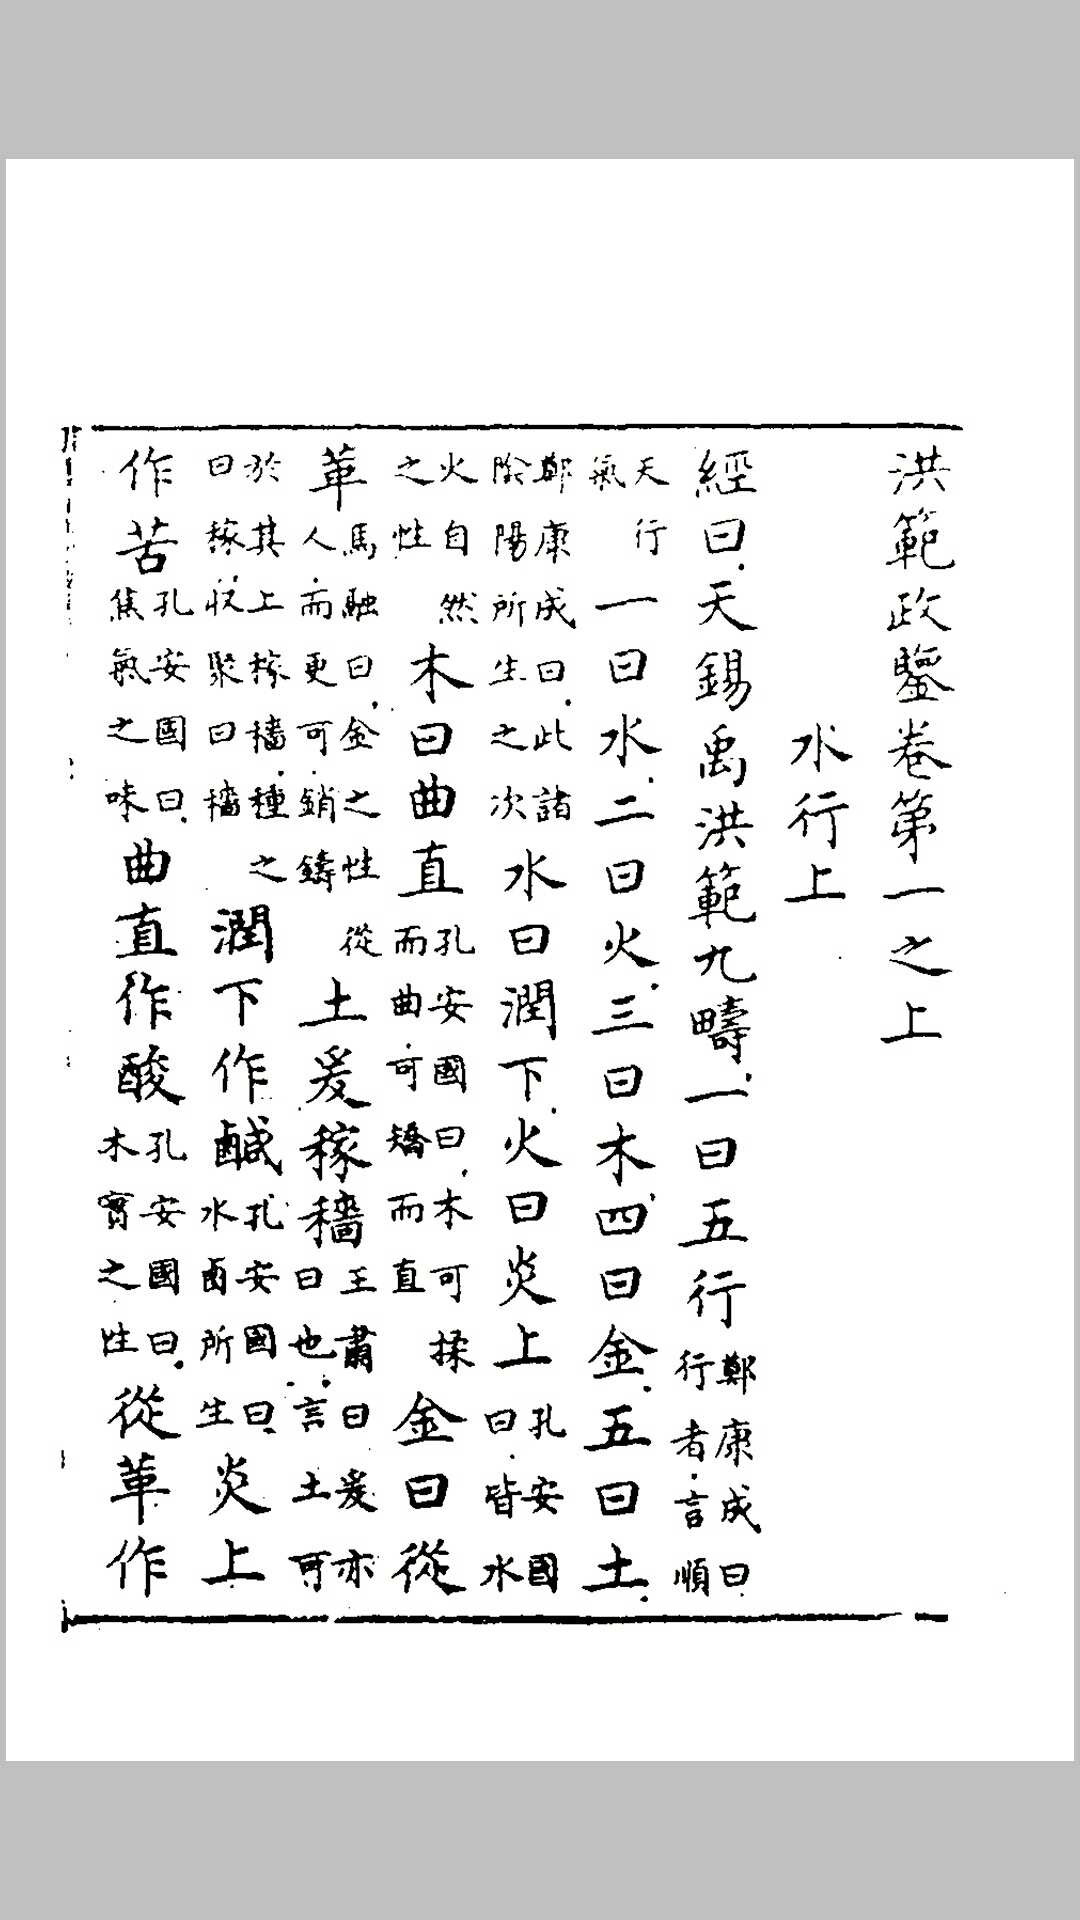 洪範政鑒卷第一之上
水行上
經曰天錫禹洪範九疇一曰五行鄭康成曰行者言順
天行氣一曰水二曰火三曰木四曰金五曰土
鄭康成曰此諸陰陽所生之次水曰潤下火曰炎上孔安國曰皆水
火自然之性木曰曲直孔安國曰木可揉而曲可矯而直金曰從
革馬融曰金之性從人而更可銷鑄土爰稼穡王肅曰爰亦曰也言土可
於其上稼穡種之曰稼収聚曰穡潤下作鹹孔安國曰水鹵所生炎上
作苦孔安國曰焦氣之味曲直作酸孔安國曰木實之性從革作